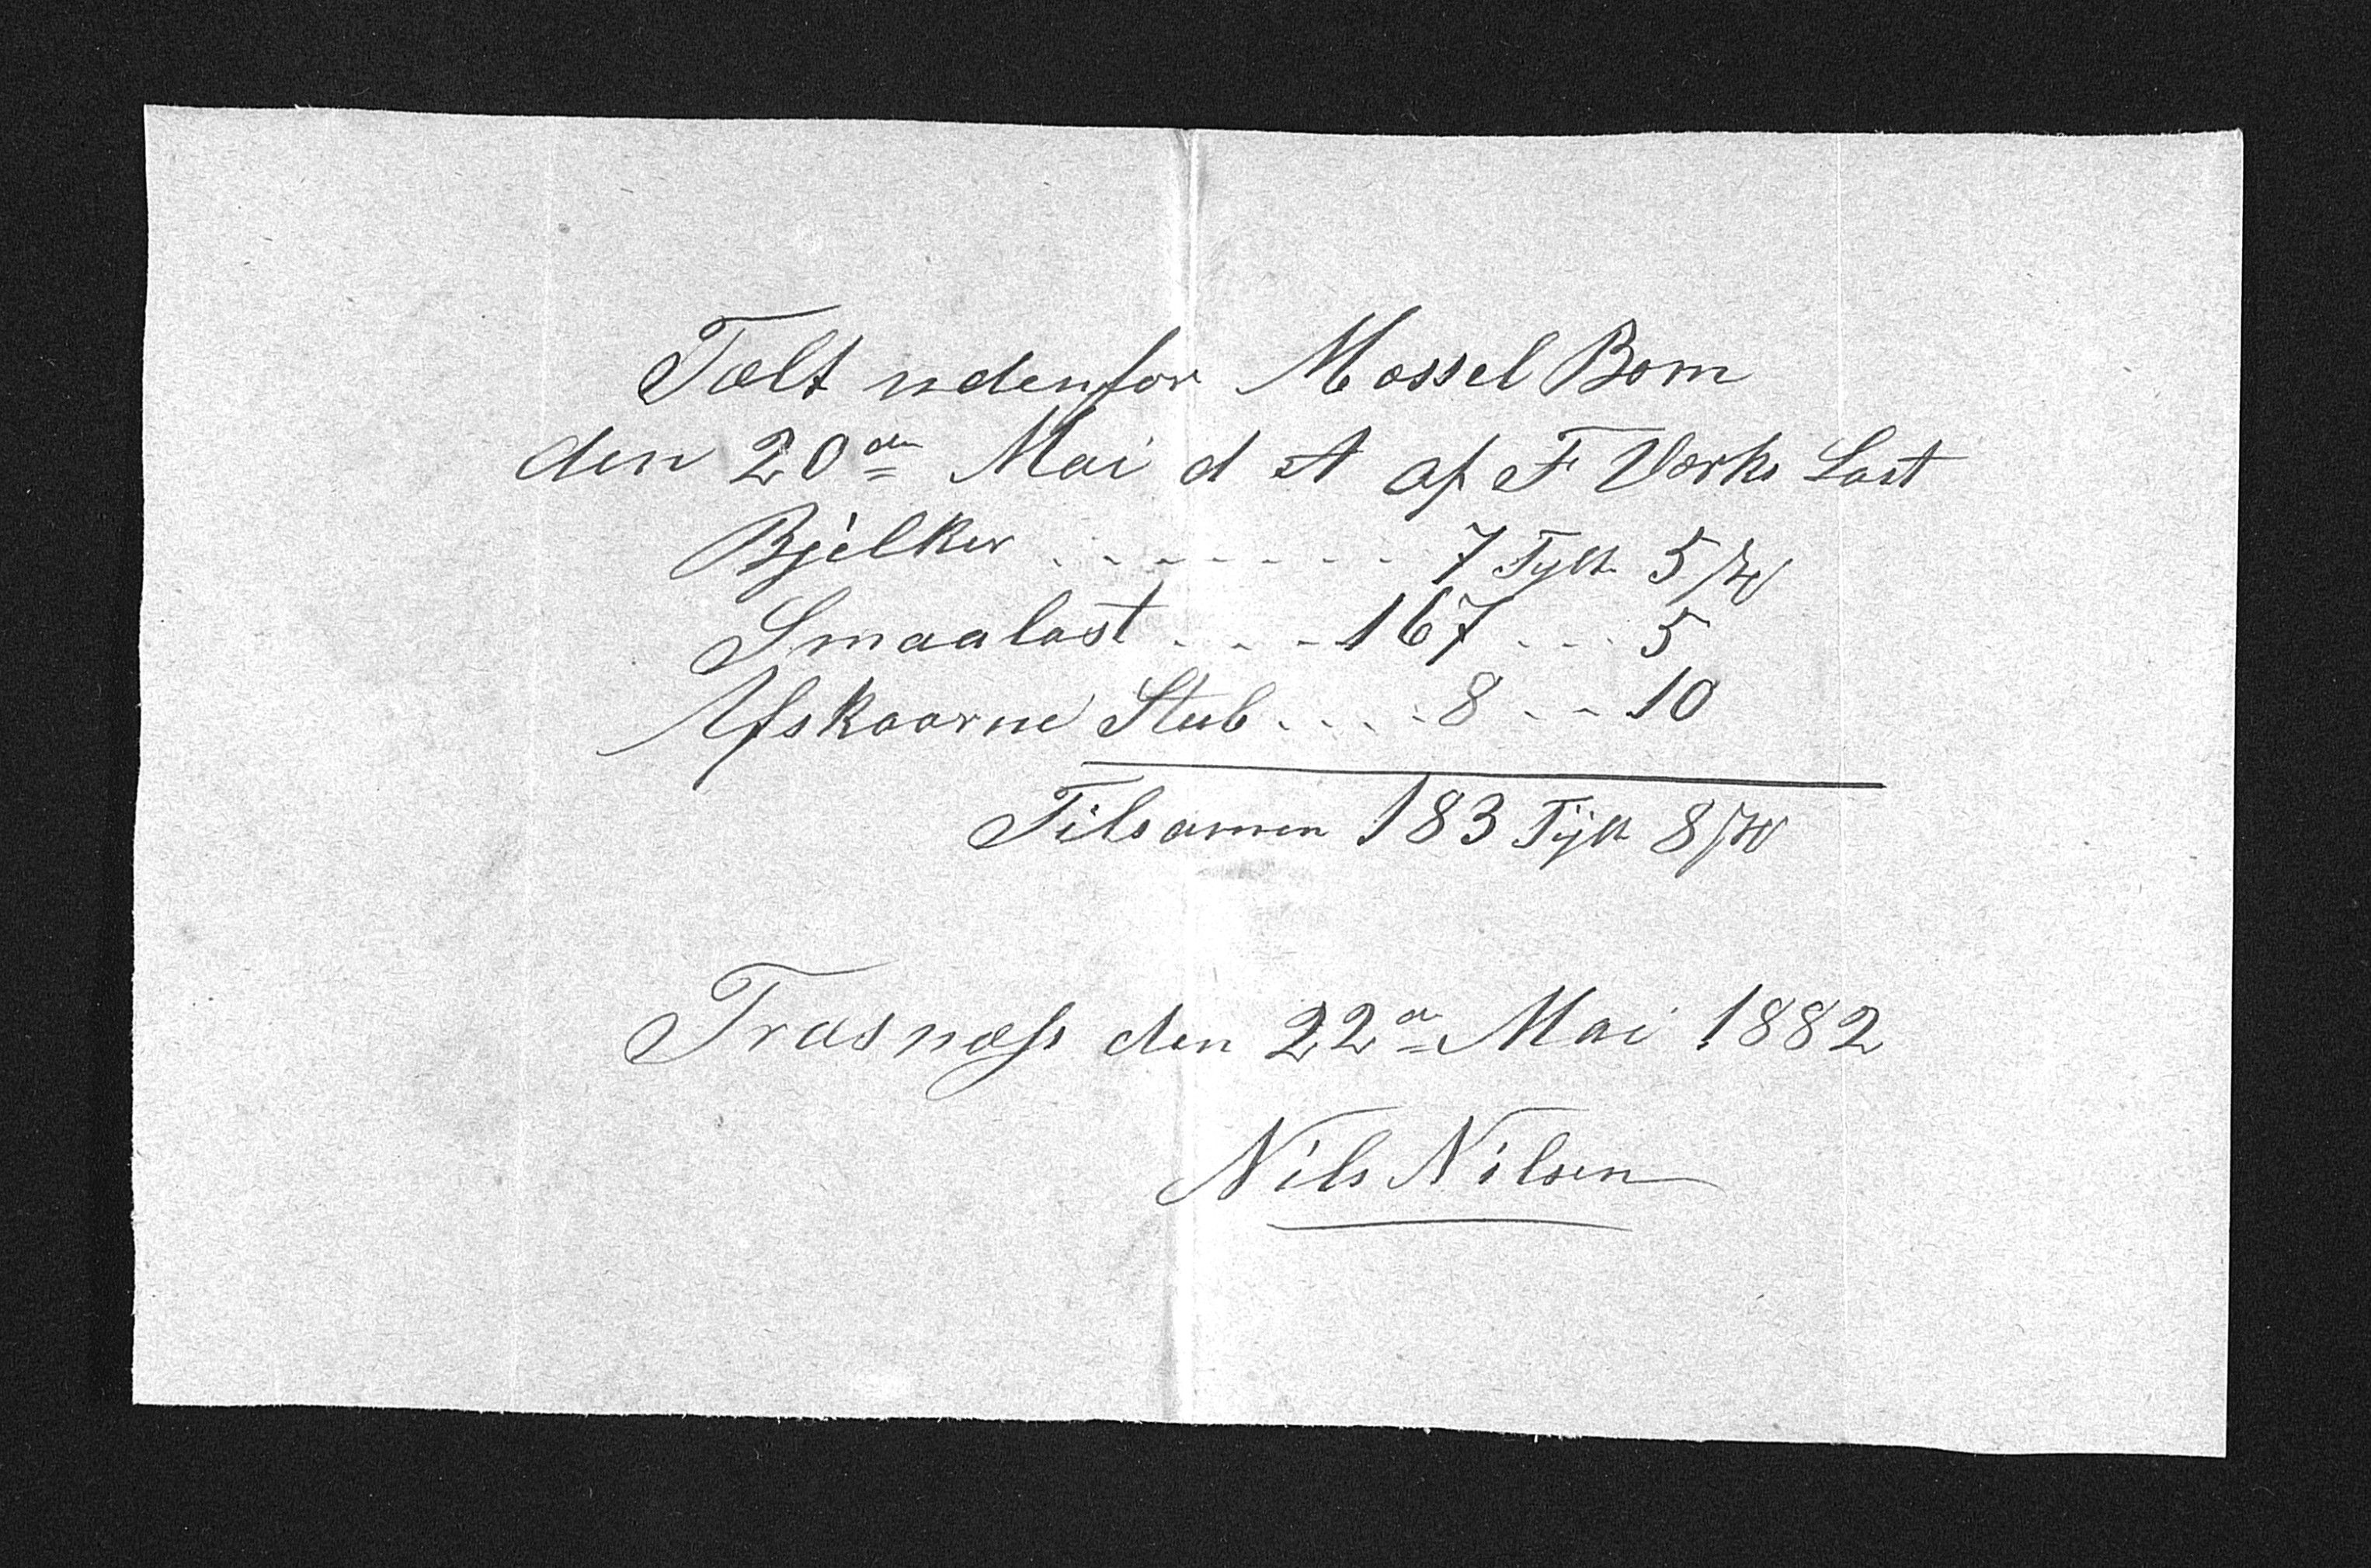 Tælt udenfor Mossel Bom
den 20de Mai d A af F Værks Last
Bjelker . . . . . . . . 7 Tylt 5 St
Smaalast . . . 167 . . . 5
Afskaarne Stub . . . . 8 . . . 10
Tilsamen 183 Tylt 8 St
Træsnæss den 22de Mai 1882
Nils Nilsen